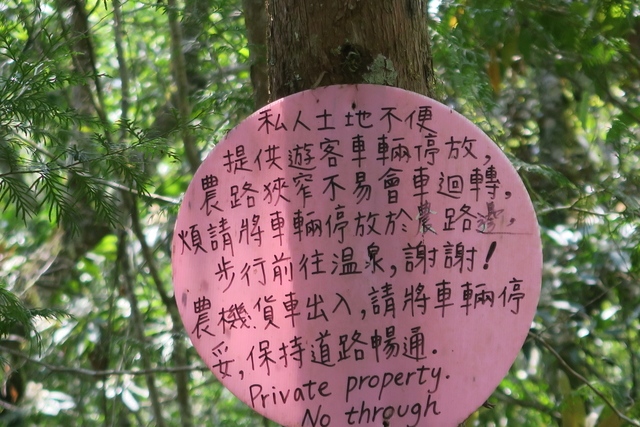 私人土地不便
提供遊客車輛停放,
農路狹窄不易會車迴轉,
煩請將車輛停放於農路邊,
步行前往溫泉,謝謝!
農機貨車出入,請將車輛停
妥,保持道路暢通。
Private property.
No through